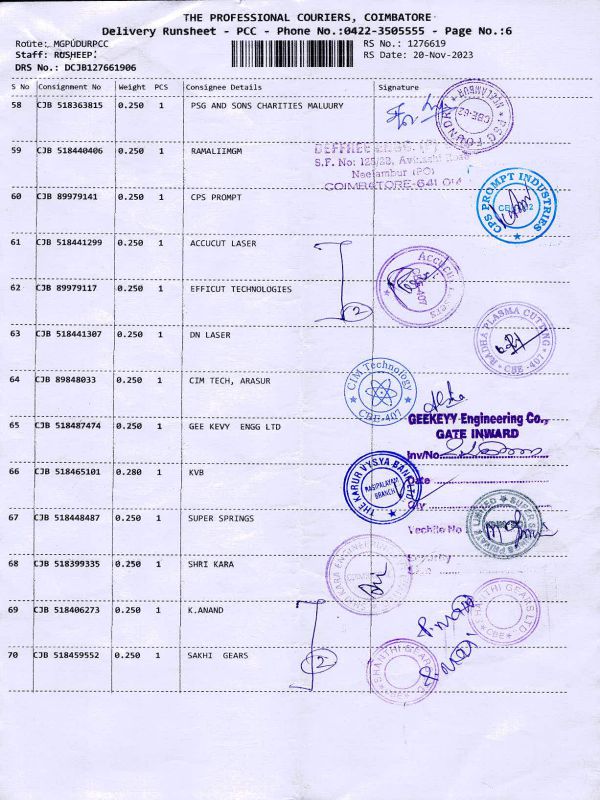 THE PROFESSIONAL COURIERS, COIMBATORE
Delivery Runsheet - PCC - Phone No.:0422-3505555 - Page No.:6
Route: MGPUDURPCC RS No.: 1276619
Staff: RUSHEEP. RS Date: 20-Nov-2023
DRS No.: DCJB127661906
S No Consignment No Weight PCS Consignee Details Signature
58 CJB 518363815 0.250 1 PSG AND SONS CHARITIES MALUURY
PSG FOUNDRY NEELAMBUR CBE-62
59 CJB 518440406 0.250 1 RAMALIIMGM
S.F. No: Avinashi Road
Neelambur (PO)
COIMBATORE-641
60 CJB 89979141 0.250 1 CPS PROMPT
CPS PROMPT INDUSTRIES
61 CJB 518441299 0.250 1 ACCUCUT LASER
62 CJB 89979117 0.250 1 EFFICUT TECHNOLOGIES
2
63 CJB 518441307 0.250 1 DN LASER
RADHA PLASMA CUTTING CBE-407
64 CJB 89848033 0.250 1 CIM TECH, ARASUR
CIM Technology CBE-407
65 CJB 518487474 0.250 1 GEE KEVY ENGG LTD
GEEKEYY Engineering Co.,
GATE INWARD
Inv/No
66 CJB 518465101 0.280 1 KVB
THE KARUR VYSYA BANK LTD RASIPALAYAM BRANCH
Date
67 CJB 518448487 0.250 1 SUPER SPRINGS
SUPER SPRINGS PRIVATE LIMITED
Vechile No
68 CJB 518399335 0.250 1 SHRI KARA
69 CJB 518406273 0.250 1 K.ANAND
SHANTHI GEARS LTD CBE
70 CJB 518459552 0.250 1 SAKHI GEARS
2
SHANTHI GEARS CBE